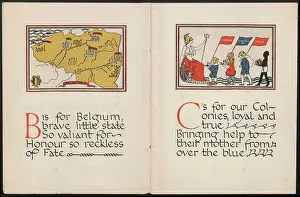 B is for Belgium,
brave little state
So valiant for
Honour so reckless
of Fate
C's for our Col-
onies, loyal and
true
Bringing help to
their mother from
over the blue